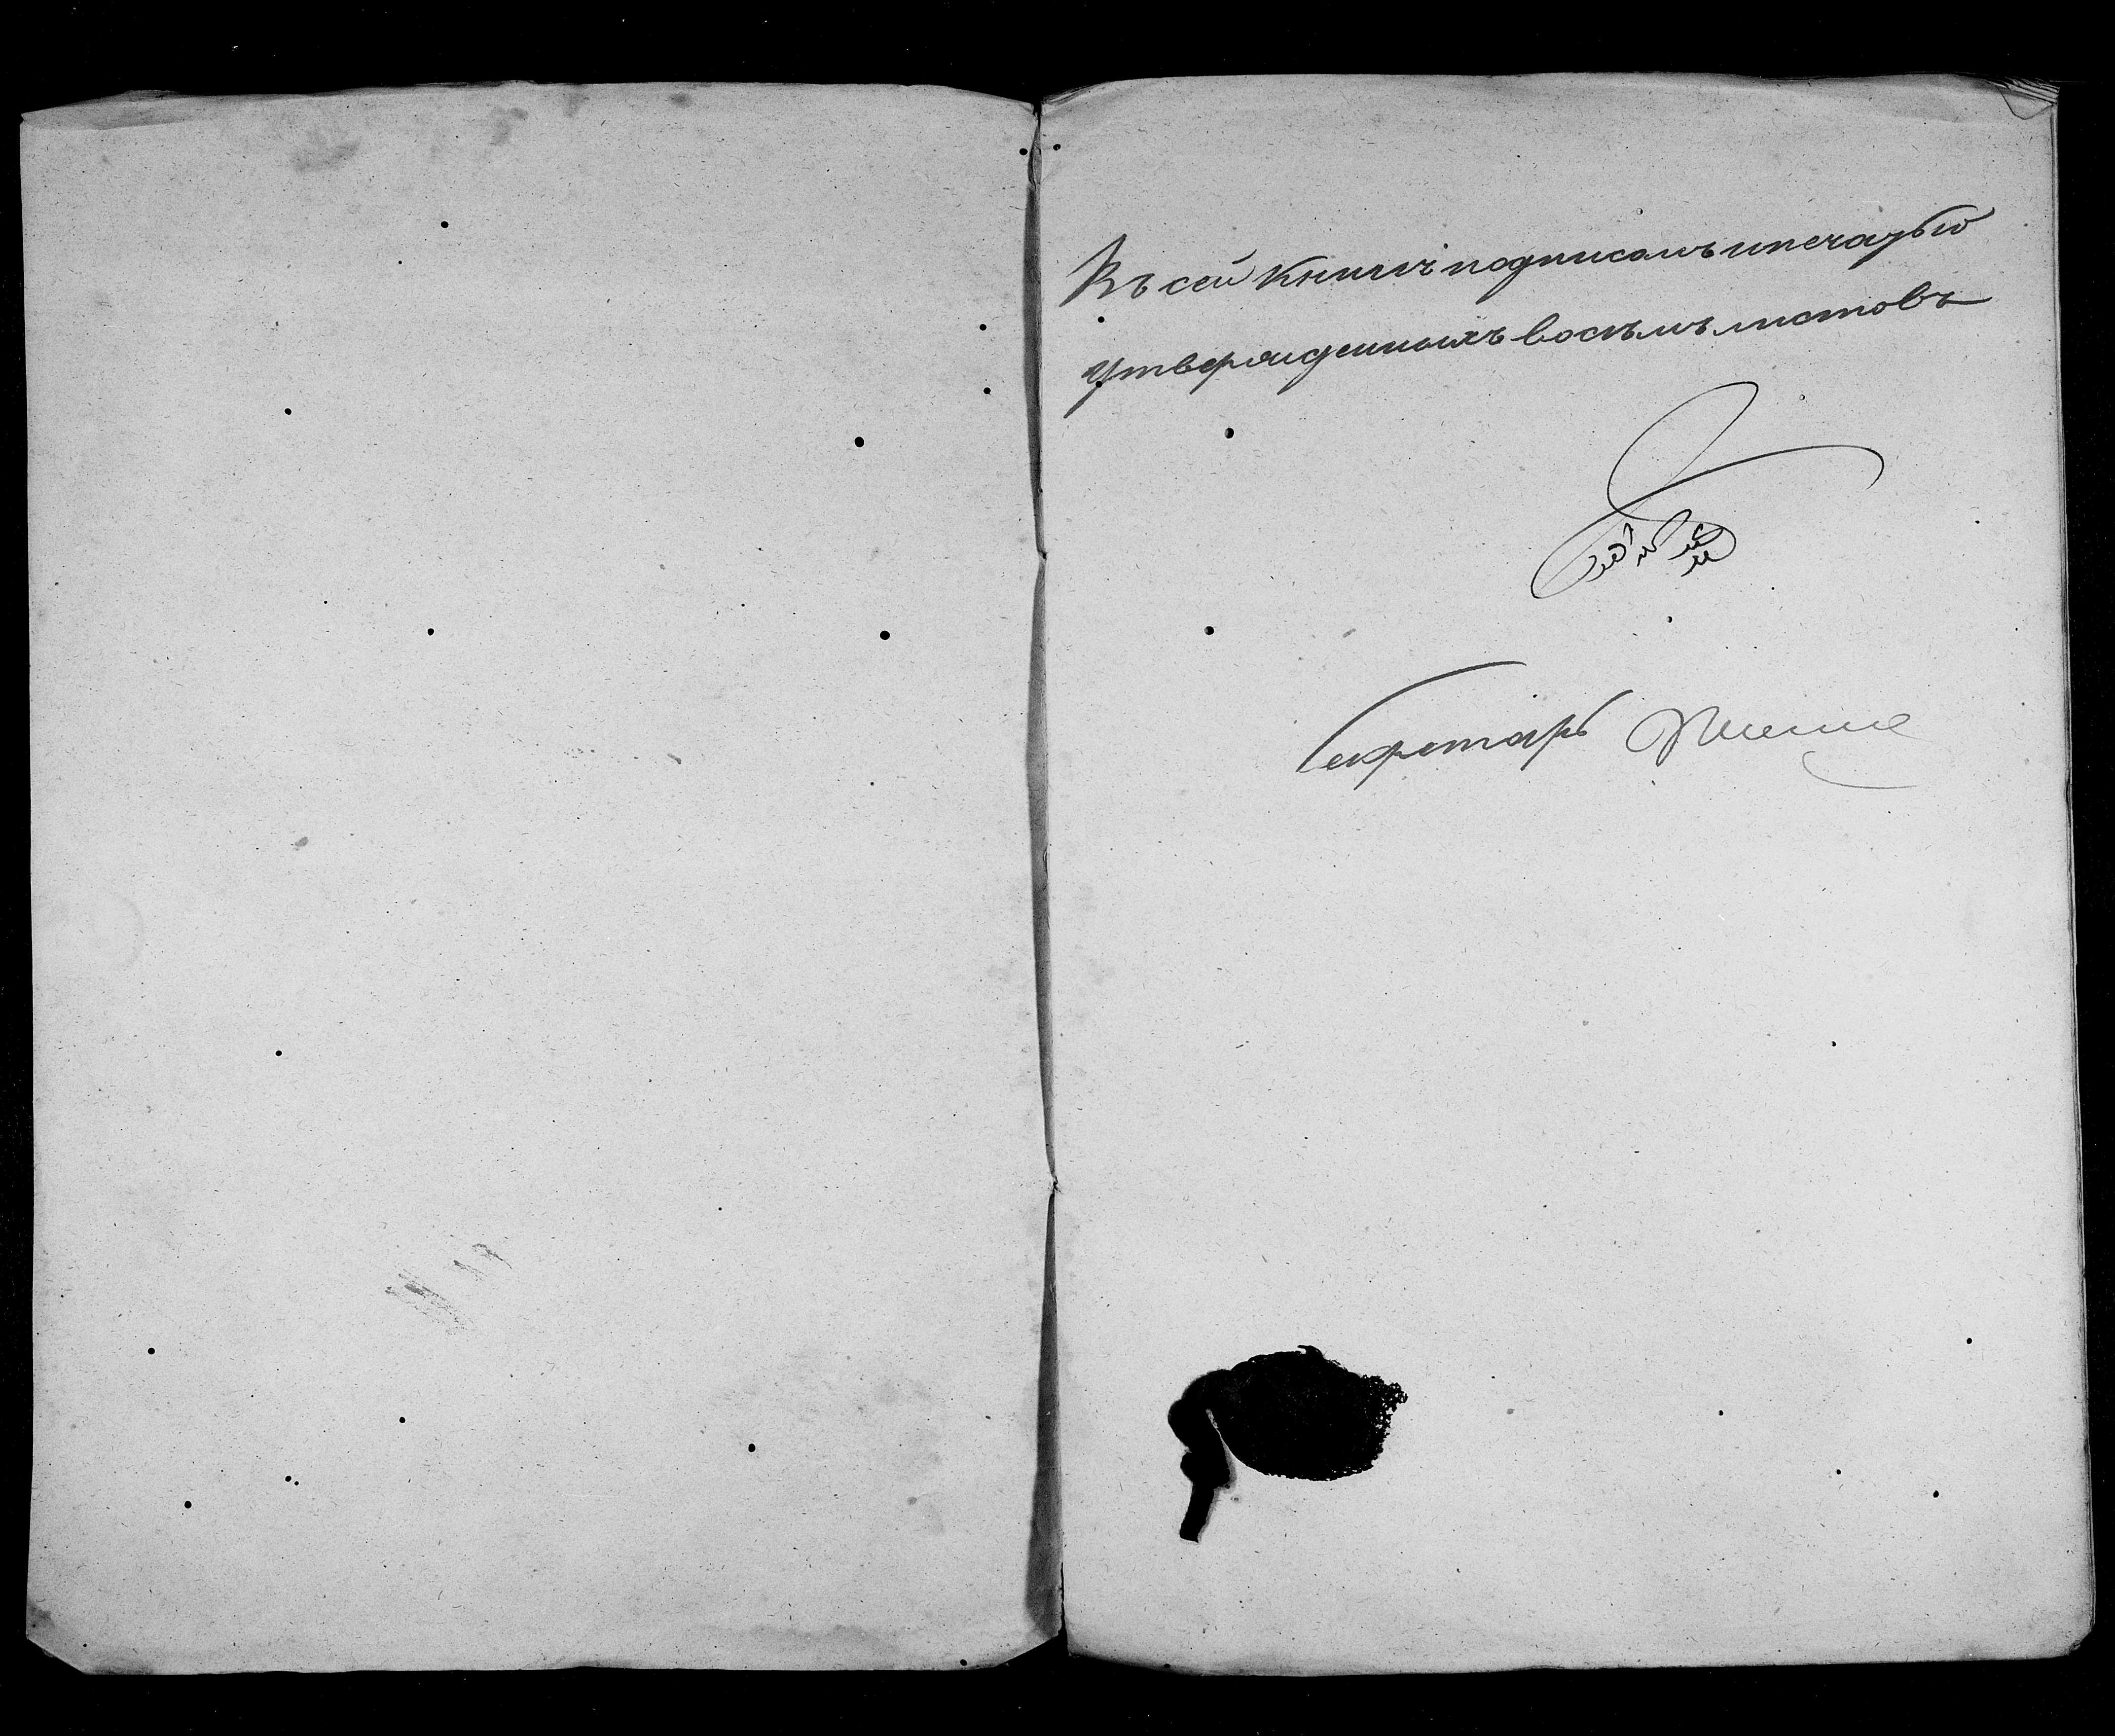 Въ сей книгѣ подписомъ и печатью
утвержденныхъ восьмъ листовъ
Секретарь